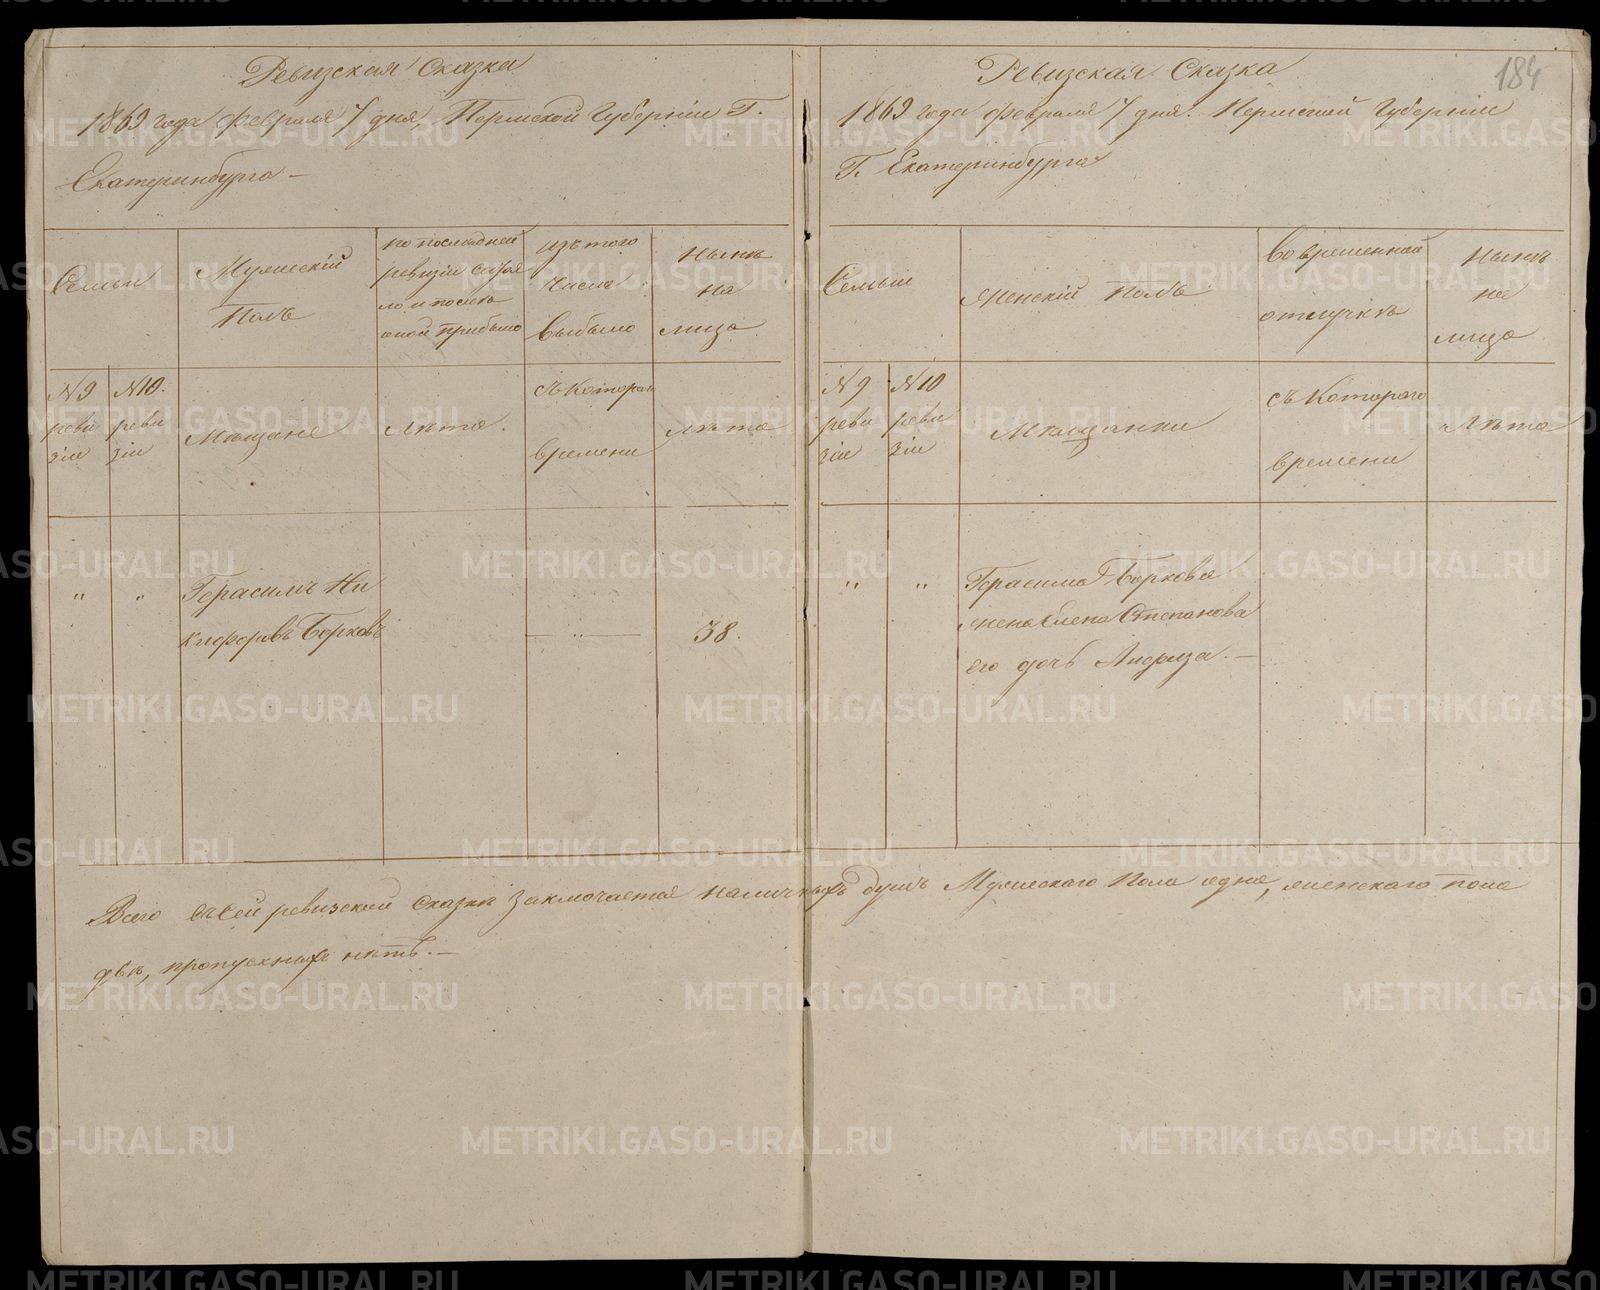 184
Ревизская Сказка
1869 года Февраля 7 дня, Пермской Губерніи Г.
Екатеринбурга –
Семьи
Мужескій
Полъ
по последней
ревизіи состоя
ло и после
оной прибыло
изъ того
числа
выбыло
Нынѣ
на
лицо
N 9
реви
зіи
N 10.
реви
зіи
Мещане
Лѣта.
съ котораго
времени
Лѣта
" "
Герасимъ Ни
кифоровъ Борковъ
"
38.
Ревизская Сказка
1869 года Февраля 7 дня. Пермской Губерніи
Г. Екатеринбурга
Семьи
Женскій Полъ
Во временной
отлучкѣ
Нынѣ
на
лицо
N 9
реви
зіи
N 10
реви
зіи
Мещанки
съ Котораго
времени
Лѣта
" "
Герасима Боркова
жена Елена Степанова
его дочь Лидиза. –
Всего въ сей ревизской сказкѣ заключается наличныхъ душъ Мужескаго Пола одна, женскаго пола
двѣ, пропускныхъ нѣтъ. –
METRIKI.GASO-URAL.RU